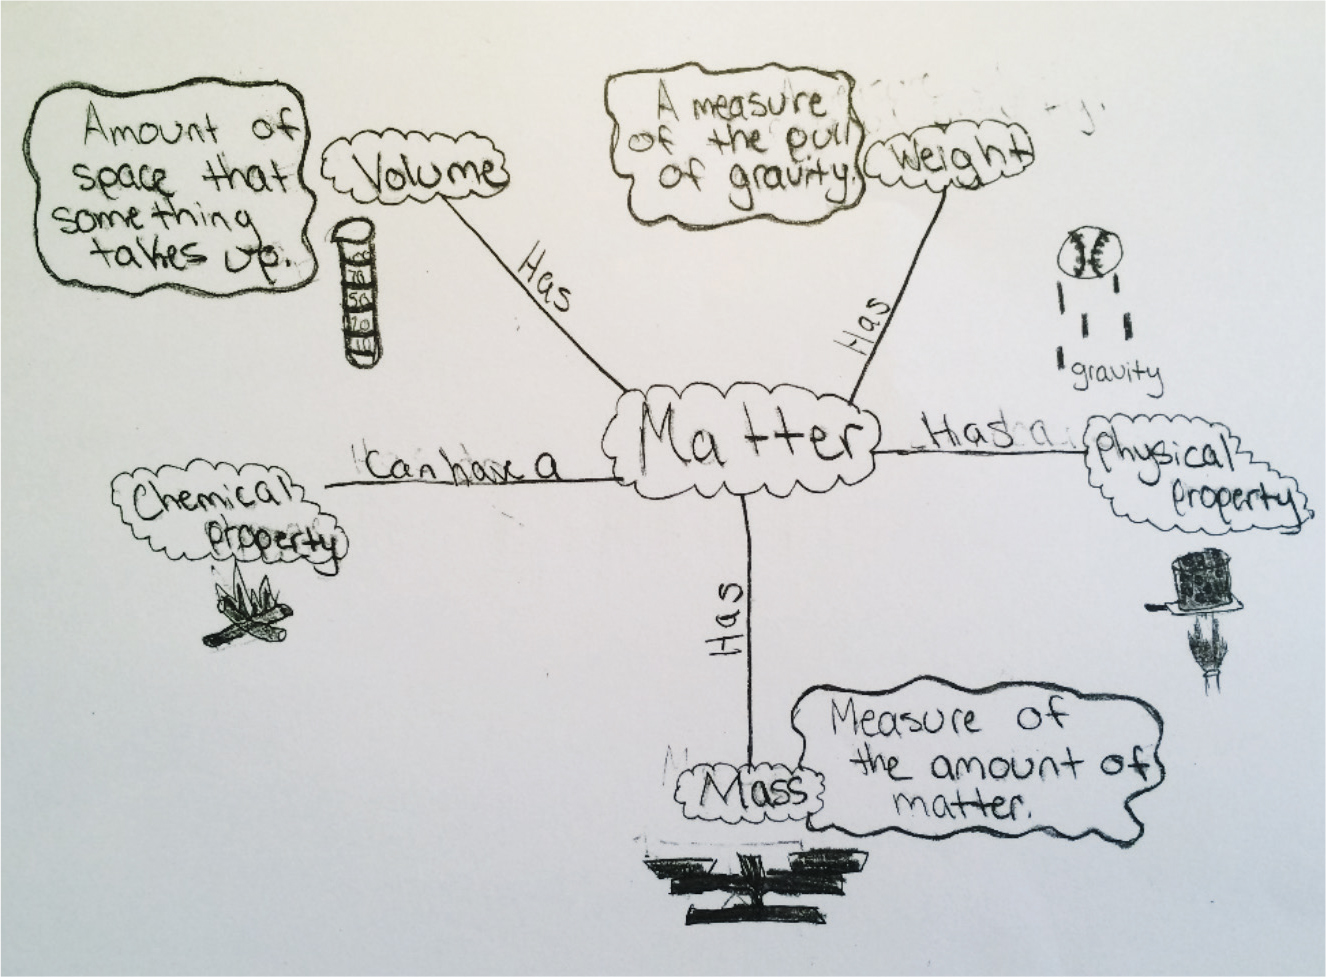 Amount of
space that
something
takes up.
Volume
A measure
of the pull
of gravity.
Weight
Has
Has
gravity
Matter
Can have a
Has a
Chemical
property
physical
property
Has
Mass
Measure of
the amount of
matter.